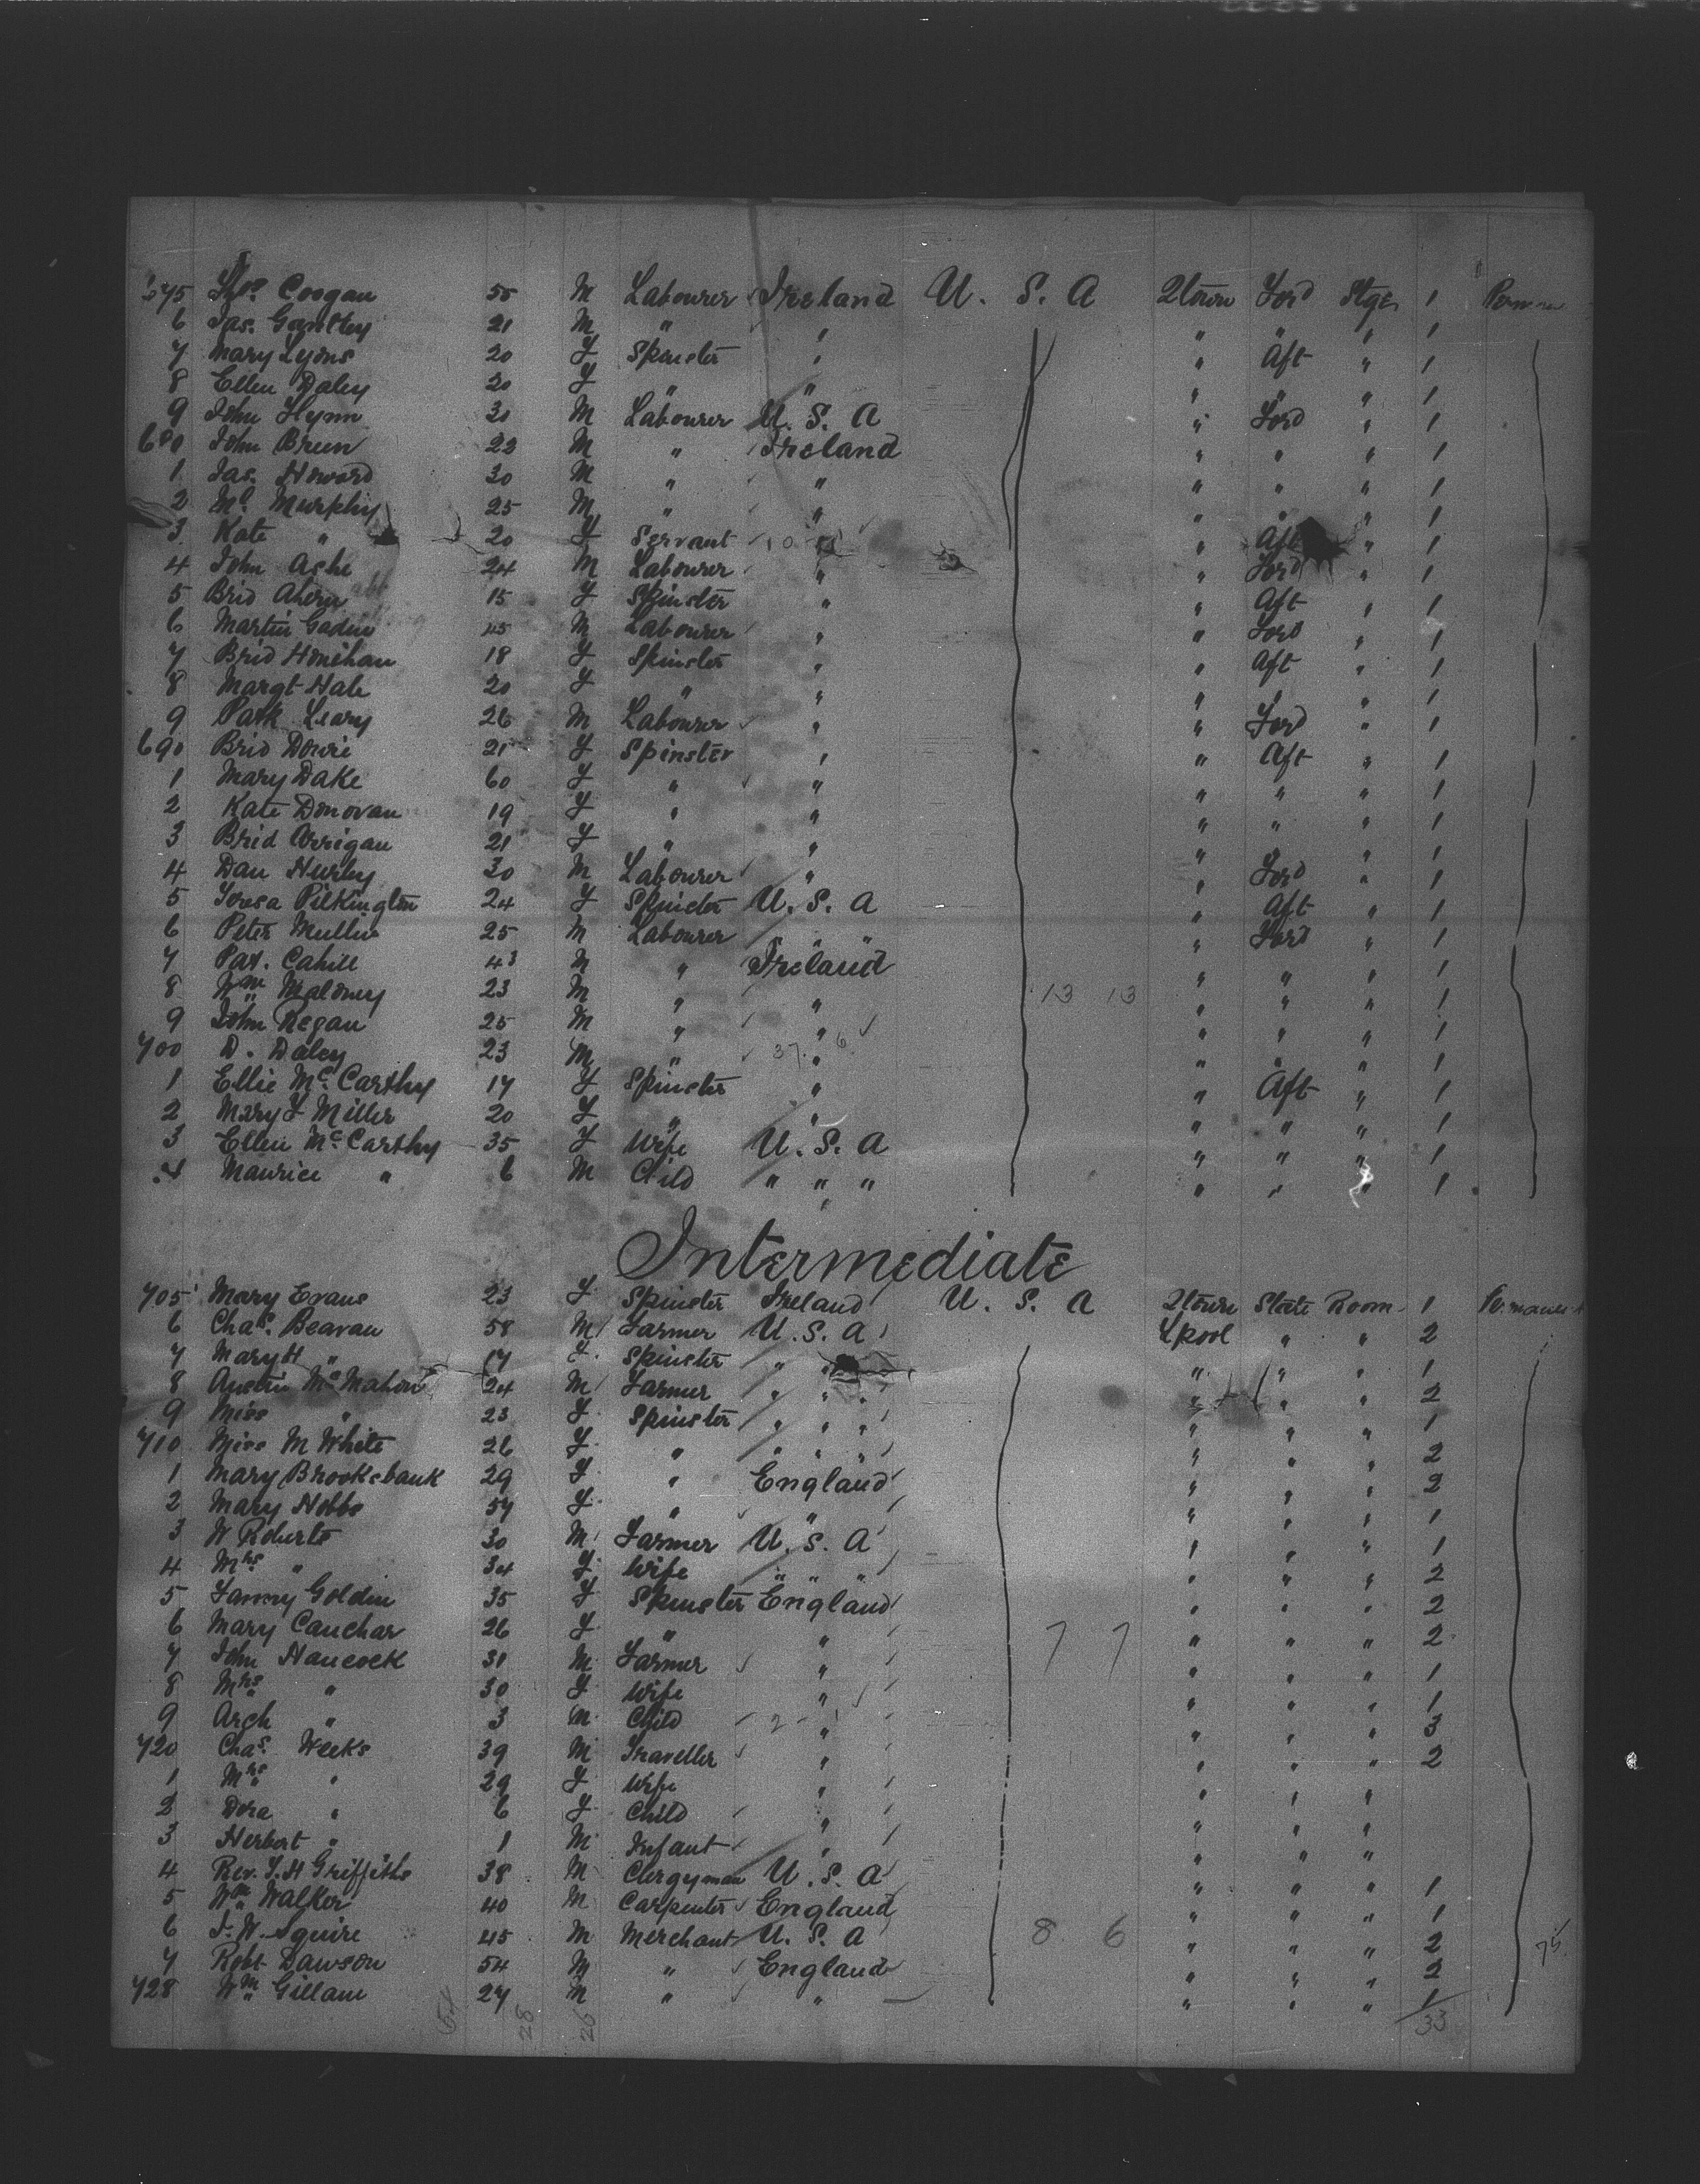 675 Thos. Coogan 55 M Labourer Ireland U. S. A 2town Ford Stge 1
6 Jas. Gantley 21 M " " " " " 1
7 Mary Lyons 20 F Spinster " " Aft " 1
8 Ellen Daley 20 F " " " " " 1
9 John Flynn 30 M Labourer U. S. A " Ford " 1
680 John Breen 22 M " Ireland " " " 1
1 Jas. Howard 30 M " " " " " 1
2 Ml. Murphy 25 M " " " " " 1
3 Kate " 20 F Servant " " Aft " 1
4 John Ashe 24 M Labourer " " Ford " 1
5 Brid Ahern 15 F Spinster " " Aft " 1
6 Martin 45 M Labourer " " Ford " 1
7 Brid Honihan 18 F Spinster " " Aft " 1
8 Margt Hale 20 F " " " " " 1
9 Patk Leary 26 M Labourer " " Ford " 1
690 Brid Dowie 21 F Spinster " " Aft " 1
1 Mary Dake 60 F " " " " " 1
2 Kate Donovan 19 F " " " " " 1
3 Brid Corrigan 21 F " " " " " 1
4 Dan Hurley 30 M Labourer " " Ford " 1
5 Pilkington 24 F Spinster U. S. A " Aft " 1
6 Peter Mullin 25 M Labourer " " " " Ford " 1
7 Pat. Cahill 43 M " Ireland " " " 1
8 Wm Maloney 23 M " " 13 13 " " " 1
9 John Regan 25 M " " " " " 1
700 D. Daley 23 M " 37. 6 " " " " 1
1 Ellie McCarthy 17 F Spinster " " Aft " 1
2 Mary F Miller 20 F " " " " " 1
3 Ellen McCarthy 35 F Wife U. S. A " " " 1
4 Maurice " 6 M Child " " " " " " 1
Intermediate
705 Mary Evans 23 F Spinster Ireland U. S. A 2town State Room 1 Permanent
6 Chas. Beavan 58 M Farmer U. S. A Lpool " " 2
7 Mary H " 17 F Spinster " " " " " 1
8 Austin McMahon 24 M Farmer " " " " " " 2
9 Miss " 23 F Spinster " " " " " " 1
710 Miss M White 26 F " " " " " " " 2
1 Mary Brooksbank 29 F " England " " " 2
2 Mary Hobbs 57 F " " " " " 1
3 W Roberts 30 M Farmer U. S. A " " " 1
4 Mrs " 34 F Wife " " " " " " 2
5 Fanny Goldin 35 F Spinster England " " " 2
6 Mary Cauchar 26 F " " 7 7 " " " 2
7 John Hancock 31 M Farmer " " " " 1
8 Mrs " 30 F Wife " " " " 1
9 Arch " 3 M Child 2 " " " " 3
720 Chas. Weeks 39 M Traveller " " " " 2
1 Mrs " 29 F Wife " " " "
2 Dora " 6 F Child " " " "
3 Herbert " 1 M Infant " " " "
4 Rev. T. H Griffiths 38 M Clergyman U. S. A " " " 1
5 Wm Walker 40 M Carpenter England " " " 1
6 J. W. Squire 45 M Merchant U. S. A 8 6 " " " 2 75
7 Robt Dawson 54 M " England " " " 2
728 Wm Gillam 27 M " " " " " 1
54 28 26 33